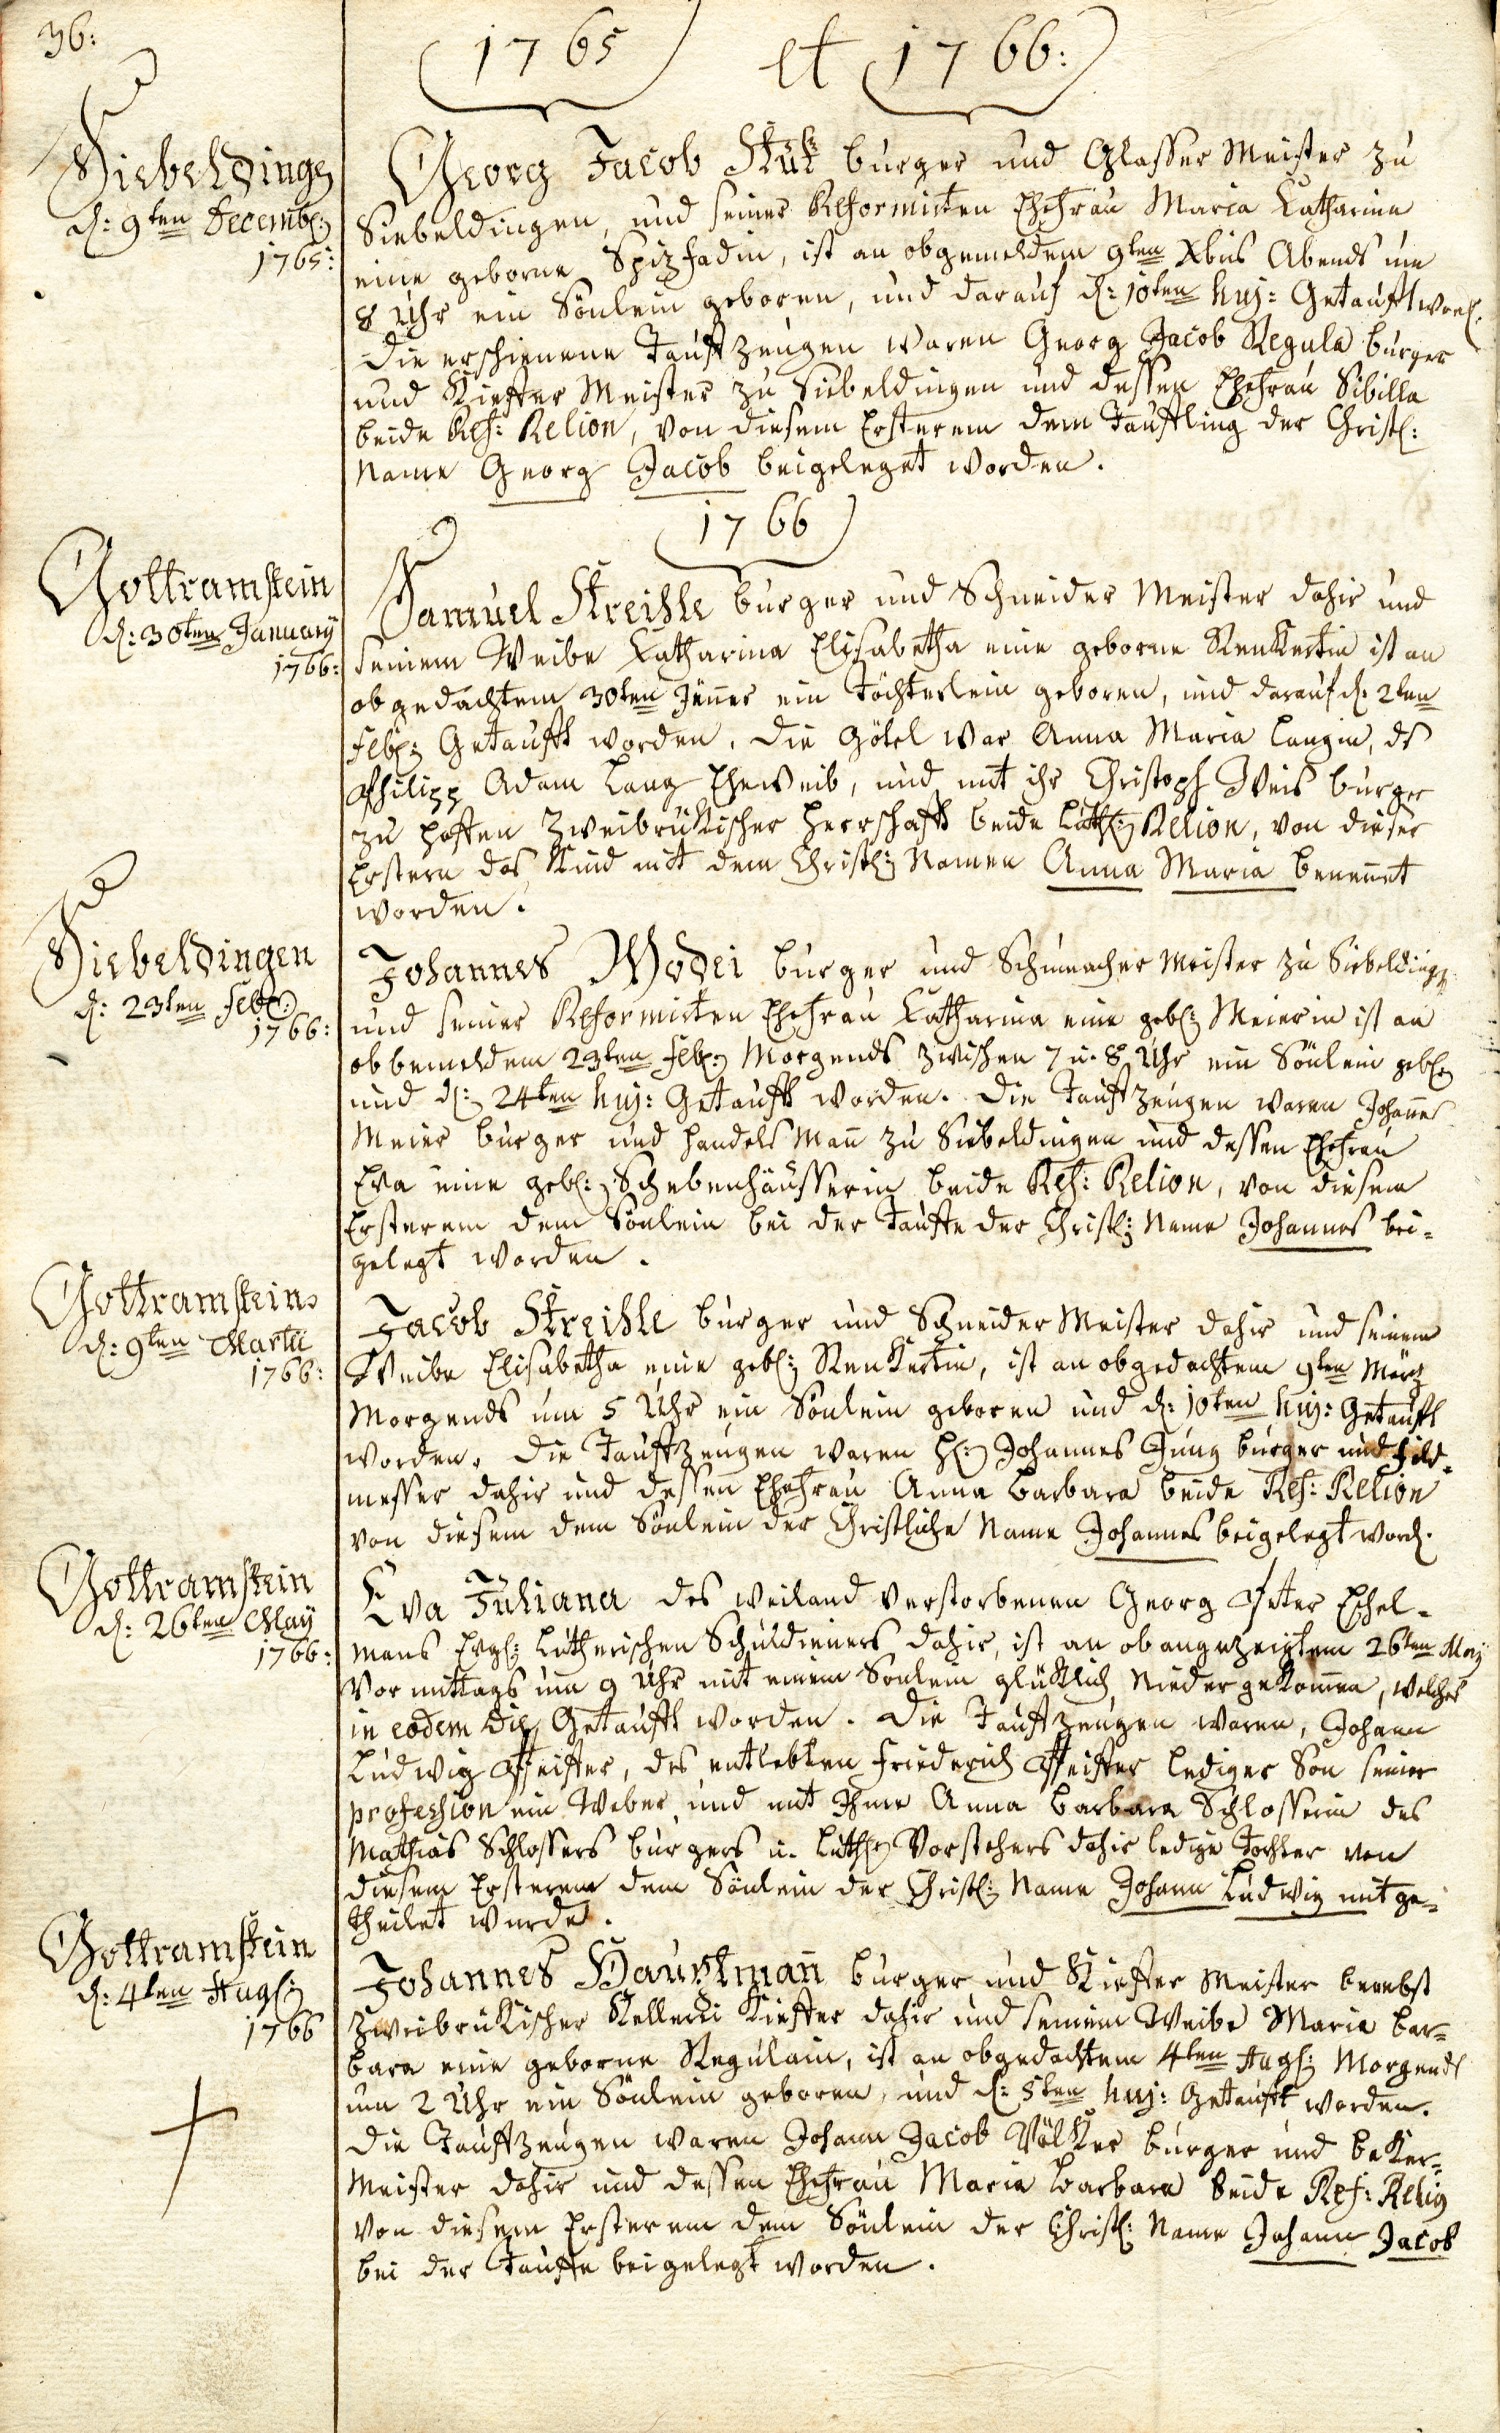 36:
1765 et 1766:
Siebelding
d: 9ten Decemb:
1765:
Georg Jacob Stük burger und Glasser Meister zu
Siebeldingen, und seiner Reformirten Ehefrau Maria Catharina
eine geborne Spizfadin, ist an obgemeldem 9ten Xbris Abends um
8 Uhr ein Sönlein geboren, und darauf d: 10ten huj: Getaufft word.
Die erschienene Tauff zeugen waren Georg Jacob Regula burger
und Kieffer Meister zu Siebeldingen und dessen Ehefrau Sibilla
beide Ref: Relion, von diesem Ersterem dem Täuffling der Christl:
Name Georg Jacob beigeleget worden.
1766
Gottramstein
d: 30ten Januarÿ
1766:
Samuel Streißle burger und Schneider Meister dahir und
seinem Weibe Catharina Elisabetha eine geborne Renkertin ist an
obgedachtem 30ten Jenner ein Töchterlein geboren, und darauf d: 2ten
Feb: Getaufft worden. Die Götel war Anna Maria Langin, ds
Philipp Adam Lang Eheweib, und mit ihr Christoph Weis burger
zu Hoffen Zweibrükischer Herrschafft beide Luth: Relion, von dieser
Erstern das Kind mit dem Christl: Namen Anna Maria benennet
worden.
Siebeldingen
d: 23ten Feb:
1766:
Johannes Modei burger und Schumacher Meister zu Siebelding
und seiner Reformirten Ehefrau Catharina eine geb: Meierin ist an
obbemeldem 23ten Feb: Morgends zwischen 7 u. 8 Uhr ein Sönlein geb:
und d: 24ten huj: Getaufft worden. Die Tauff zeugen waren Johannes
Meier burger und Handels Mann zu Siebeldingen und dessen Ehefrau
Eva eine geb: Schebenhäusserin beide Ref: Relion, von diesem
Ersterem dem Sönlein bei der Tauffe der Christl: Name Johannes bei-
gelegt worden.
Gottramstein
d: 9ten Martii
1766:
Jacob Streißle burger und Schneider Meister dahir und seinem
Weibe Elisabetha eine geb: Renkertin, ist an obgedachtem 9ten Mertz
Morgends um 5 Uhr ein Sönlein geboren und d: 10ten huj: Getaufft
worden. Die Tauff zeugen waren H: Johannes Jung burger und Feld-
messer dahir und dessen Ehefrau Anna Barbara beide Ref: Relion
von diesem dem Sönlein der Christliche Name Johannes beigelegt word.
Gottramstein
d: 26ten Maÿ
1766:
Eva Juliana des weiland verstorbenen Georg Peter Eschel-
mans Evgl: Lutherischen Schuldieners dahir, ist an obangezeigtem 26ten May
Vormittags um 9 Uhr mit einem Sönlein glücklich Niedergekommen, welches
in eodem die Getaufft worden. Die Tauff zeugen waren, Johann
Ludwig Pfeiffer, des entlebten Friederich Pfeiffer lediger Son seiner
profession ein Weber und mit Ihme Anna Barbara Schlosserin des
Mathias Schlossers burgers u. Luth: Vorstehers dahir ledige Tochter von
diesem Ersterem dem Sönlein der Christl: Name Johann Ludwig mitge-
theilet wurde.
Gottramstein
d: 4ten Aug:
1766
Johannes Haubtmann burger und Kieffer Meister benebst
Zweibrükischer Kellerei Kieffer dahir und seinem Weibe Maria Bar-
bara eine geborne Regulain, ist an obgedachtem 4ten Aug: Morgends
um 2 Uhr ein Sönlein geboren, und d: 5ten huj: Getaufft worden.
Die Tauff zeugen waren Johann Jacob Völker burger und beker-
Meister dahir und dessen Ehefrau Maria Barbara beide Ref: Relig
Von diesem Ersterem dem Sönlein der Christl: Name Johann Jacob
bei der Tauffe beigelegt worden.